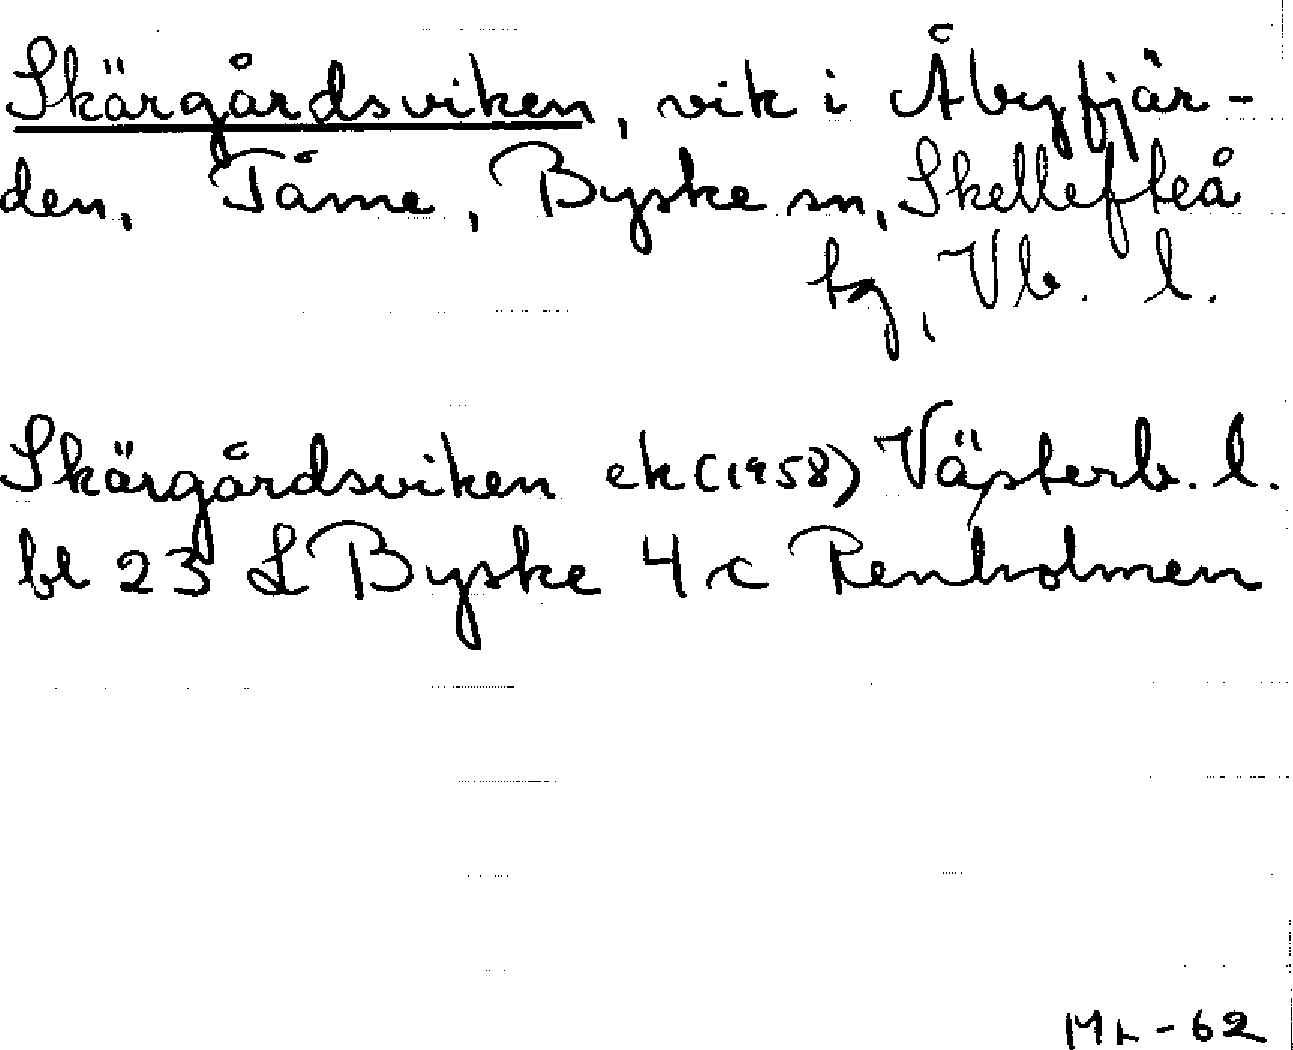 Skärgårdsviken, vik i Åbyfjär-
den, Tåme, Byske sn, Skellefteå
tg, Vb. l.
Skärgårdsviken ek (1958) Västerb. l.
bl 23 L Byske 4 c Renholmen
-62